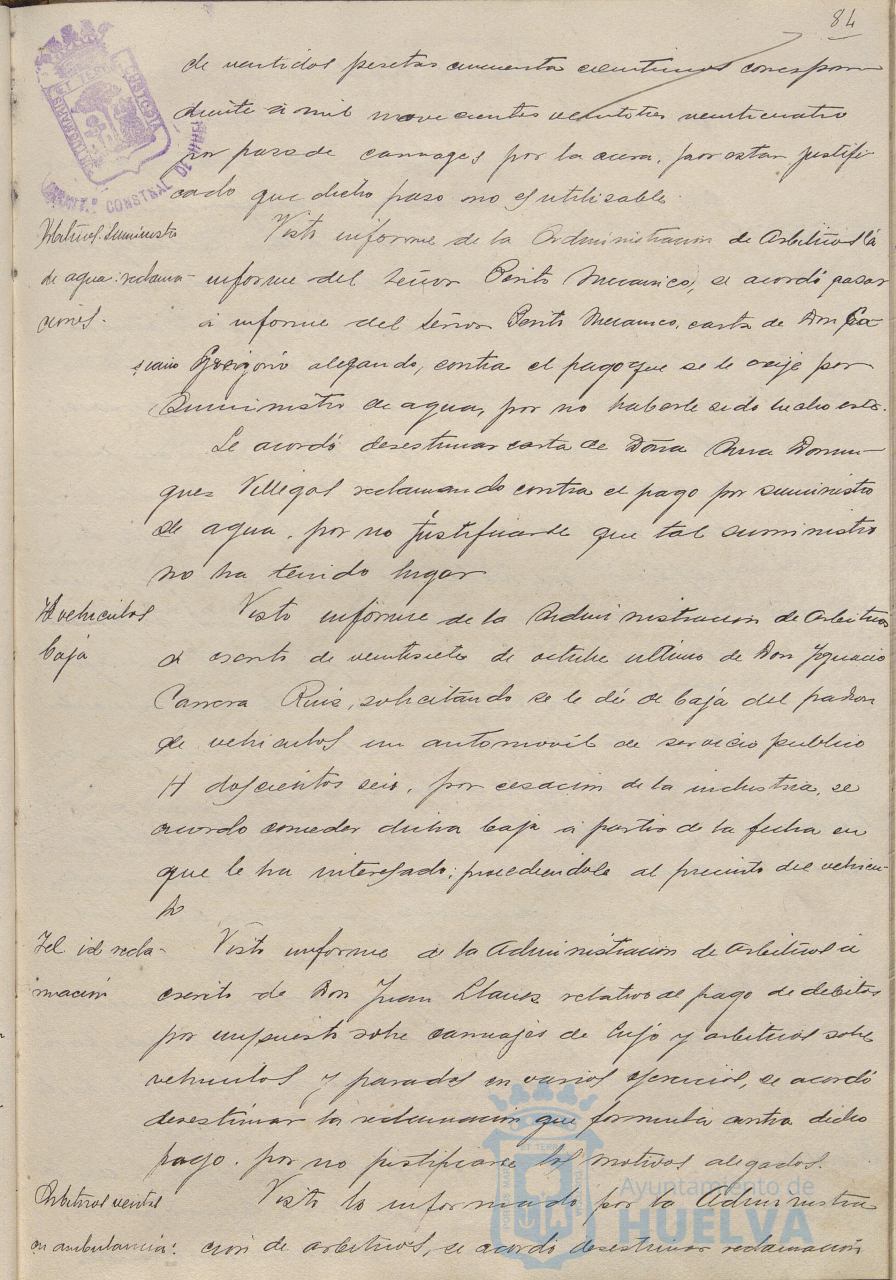 84
de veintidos pesetas cincuenta centimos correspon
diente a mil novecientos veintitres veinticuatro
por paso de carruages por la acera, por estar justifi-
cado que dicho paso no es utilizable.
Arbitrios. Suministro
de agua: reclama-
ciones.
Visto informe de la Administracion de Arbitrios
informe del Señor Perito Mecanico, se acordó pasar
á informe del Señor Perito Mecanico, carta de Don Ca
siano Gregorio alegando, contra el pago que se le exije por
suministro de agua, por no haberle sido hecho este.
Se acordó desestimar carta de Doña Ana Domin-
guez Villegas reclamando contra el pago por suministro
de agua, por no justificarse que tal suministro
no ha tenido lugar
Id vehiculos
baja
Visto informe de la Administracion de Arbitrios
á escrito de veintisiete de octubre ultimo de Don Ygnacio
Carrera Ruiz, solicitando se le dé de baja del padron
de vehiculos un automovil de servicio publico
H doscientos seis, por cesacion de la industria, se
acordo conceder dicha baja a partir de la fecha en
que le ha interesado; procediendole al precinto del vehicu-
lo
Id id recla-
mación
Visto informe de la Administracion de Arbitrios á
escrito de Don Juan Llanes relativo al pago de debitos
por impuesto sobre carruajes de lujo y arbitrios sobre
vehiculos y paradas en varios ejercicios, se acordó
desestimar la reclamacion que formula contra dicho
pago, por no justificarse los motivos alegados.
Arbitrios ventas
en ambulancia:
Visto lo informado por la Administra
cion de arbitrios, se acordo desestimar reclamación
Ayuntamiento de
HUELVA